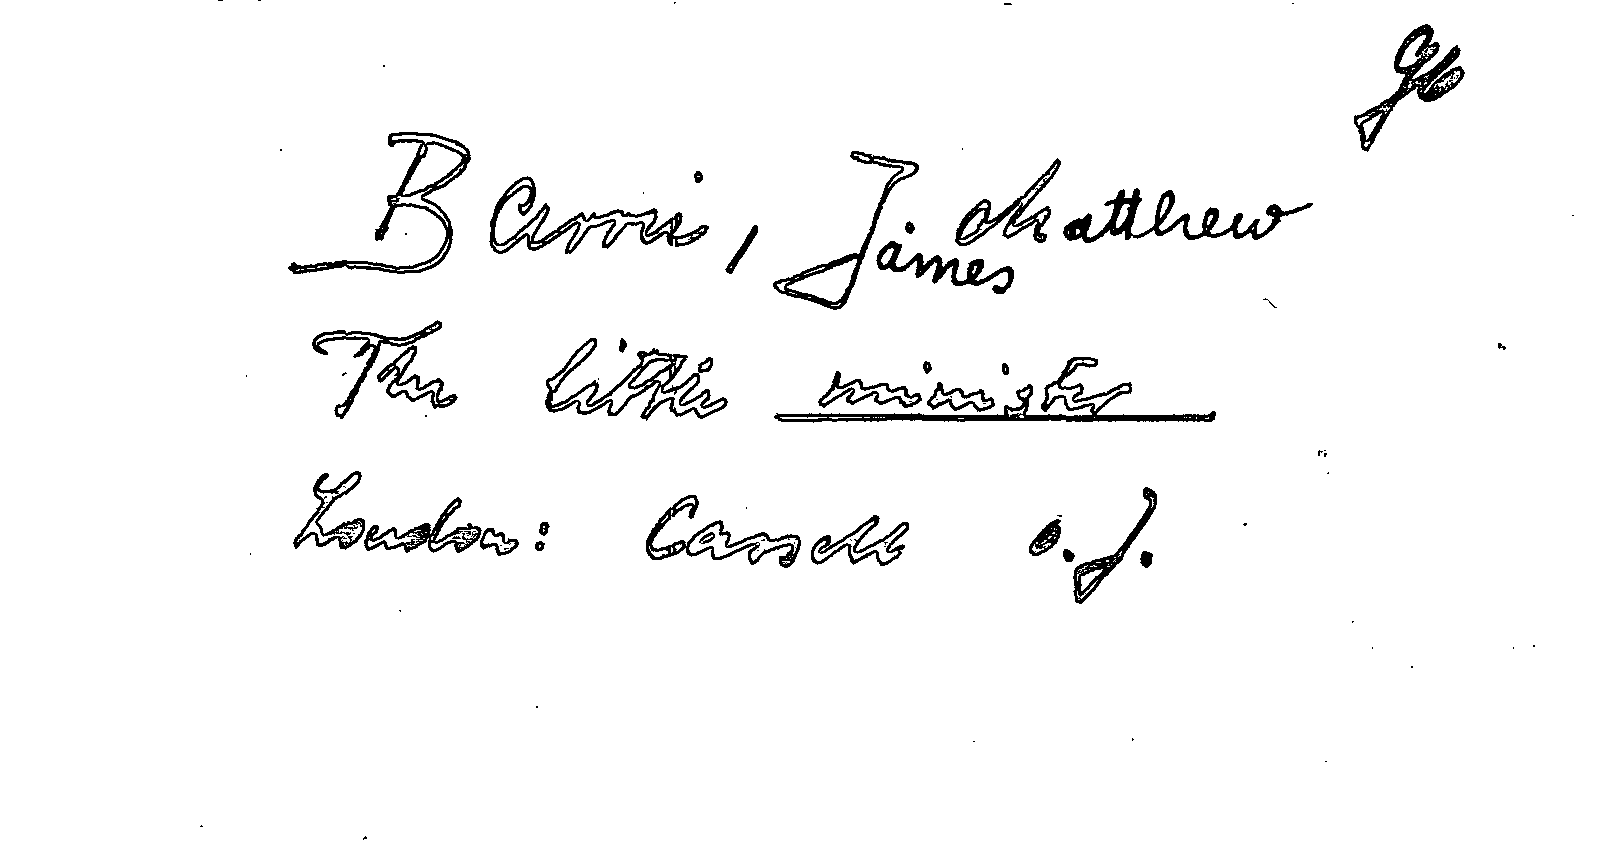 gb
Barrie, James Matthew
The little minister
London: Cassell o.J.